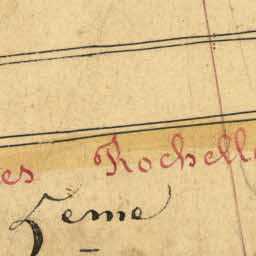 es Rochell
2eme